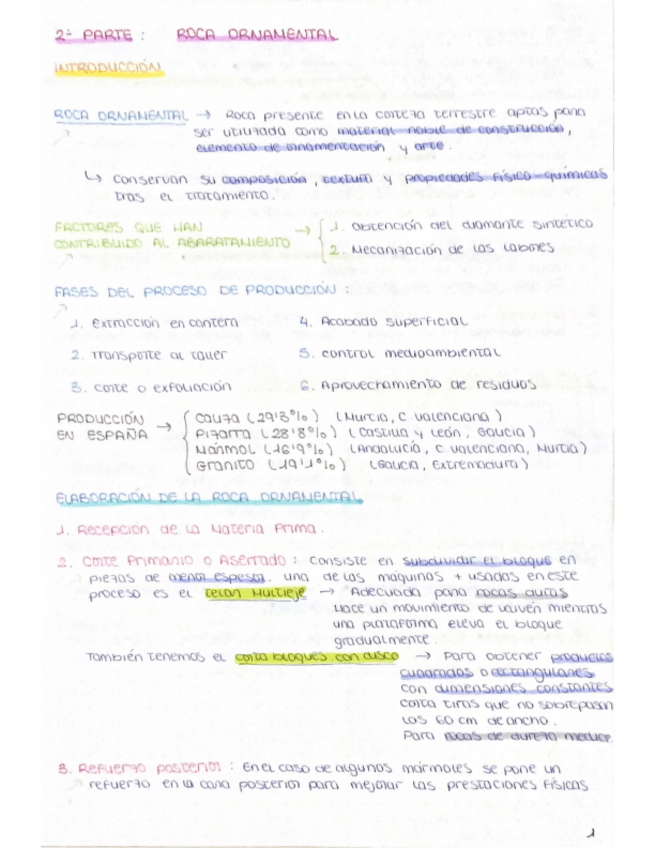 2ª PARTE : ROCA ORNAMENTAL
INTRODUCCIÓN
ROCA ORNAMENTAL → Roca presente en la corteza terrestre aptas para
ser utilizada como material noble de construcción,
elemento de ornamentación y arte.
↳ conservan su composición, textura y propiedades físico-químicas
tras el tratamiento.
FACTORES QUE HAN → 1. Obtención del diamante sintético
CONTRIBUIDO AL ABARATAMIENTO 2. Mecanización de las labores
FASES DEL PROCESO DE PRODUCCIÓN :
1. Extracción en cantera 4. Acabado superficial
2. Transporte al taller 5. control medioambiental
3. corte o exfoliación 6. Aprovechamiento de residuos
PRODUCCIÓN EN ESPAÑA → Caliza (29'3%) (Murcia, C Valenciana)
Pizarra (28'8%) (Castilla y León, Galicia)
Mármol (16'9%) (Andalucía, C Valenciana, Murcia)
Granito (19'1%) (Galicia, Extremadura)
ELABORACIÓN DE LA ROCA ORNAMENTAL
1. Recepción de la Materia Prima.
2. Corte Primario o Aserrado : Consiste en subdividir el bloque en
piezas de menor espesor. una de las maquinas + usadas en este
proceso es el Telar Multieje → Adecuada para rocas duras
Hace un movimiento de vaivén mientras
una plataforma eleva el bloque
gradualmente.
También tenemos el corta bloques con disco → Para obtener productos
cuadrados o rectangulares
con dimensiones constantes
corta tiras que no sobrepasan
los 60 cm de ancho.
Para rocas de dureza media.
3. Refuerzo posterior : En el caso de algunos mármoles se pone un
refuerzo en la cara posterior para mejorar las prestaciones físicas
1